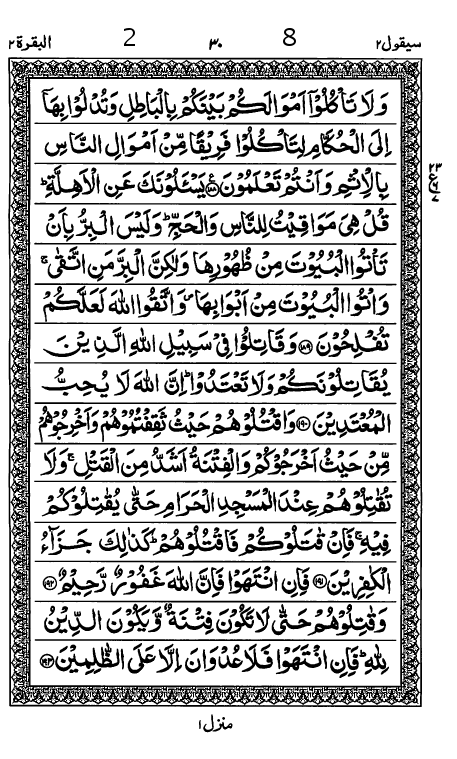 سيقول٢ ٣٠ البقرة٢
2 8
وَلَا تَأۡكُلُوۡٓا اَمۡوَالَكُمۡ بَيۡنَكُمۡ بِالۡبَاطِلِ وَتُدۡلُوۡا بِهَآ
اِلَى الۡحُـکَّامِ لِتَاۡکُلُوۡا فَرِيۡقًا مِّنۡ اَمۡوَالِ النَّاسِ
بِالۡاِثۡمِ وَاَنۡـتُمۡ تَعۡلَمُوۡنَ ﴿۱۸۸﴾ يَسۡـــَٔلُوۡنَكَ عَنِ الۡاَهِلَّةِ ؕ
قُلۡ هِىَ مَوَاقِيۡتُ لِلنَّاسِ وَالۡحَجِّ ؕ وَلَيۡسَ الۡبِرُّ بِاَنۡ
تَاۡتُوا الۡبُيُوۡتَ مِنۡ ظُهُوۡرِهَا وَلٰـكِنَّ الۡبِرَّ مَنِ اتَّقٰى‌ۚ
وَاۡتُوا الۡبُيُوۡتَ مِنۡ اَبۡوَابِهَا‌ وَاتَّقُوا اللّٰهَ لَعَلَّکُمۡ
تُفۡلِحُوۡنَ ﴿۱۸۹﴾ وَقَاتِلُوۡا فِىۡ سَبِيۡلِ اللّٰهِ الَّذِيۡنَ
يُقَاتِلُوۡنَكُمۡ وَلَا تَعۡتَدُوۡا ؕ اِنَّ اللّٰهَ لَا يُحِبُّ
الۡمُعۡتَدِيۡنَ ﴿۱۹۰﴾ وَاقۡتُلُوۡهُمۡ حَيۡثُ ثَقِفۡتُمُوۡهُمۡ وَاَخۡرِجُوۡهُمۡ
مِّنۡ حَيۡثُ اَخۡرَجُوۡكُمۡ وَالۡفِتۡنَةُ اَشَدُّ مِنَ الۡقَتۡلِۚ وَلَا
تُقٰتِلُوۡهُمۡ عِنۡدَ الۡمَسۡجِدِ الۡحَـرَامِ حَتّٰى يُقٰتِلُوۡكُمۡ
فِيۡهِ‌ۚ فَاِنۡ قٰتَلُوۡكُمۡ فَاقۡتُلُوۡهُمۡؕ كَذٰلِكَ جَزَآءُ
الۡكٰفِرِيۡنَ ﴿۱۹۱﴾ فَاِنِ انۡـتَهَوۡا فَاِنَّ اللّٰهَ غَفُوۡرٌ رَّحِيۡمٌ ﴿۱۹۲﴾
وَقٰتِلُوۡهُمۡ حَتّٰى لَا تَكُوۡنَ فِتۡنَةٌ وَّيَكُوۡنَ الدِّيۡنُ
لِلّٰهِ‌ؕ فَاِنِ انۡتَهَوۡا فَلَا عُدۡوَانَ اِلَّا عَلَى الظّٰلِمِيۡنَ ﴿۱۹۳﴾
٢٣
ع
٧
منزل ١